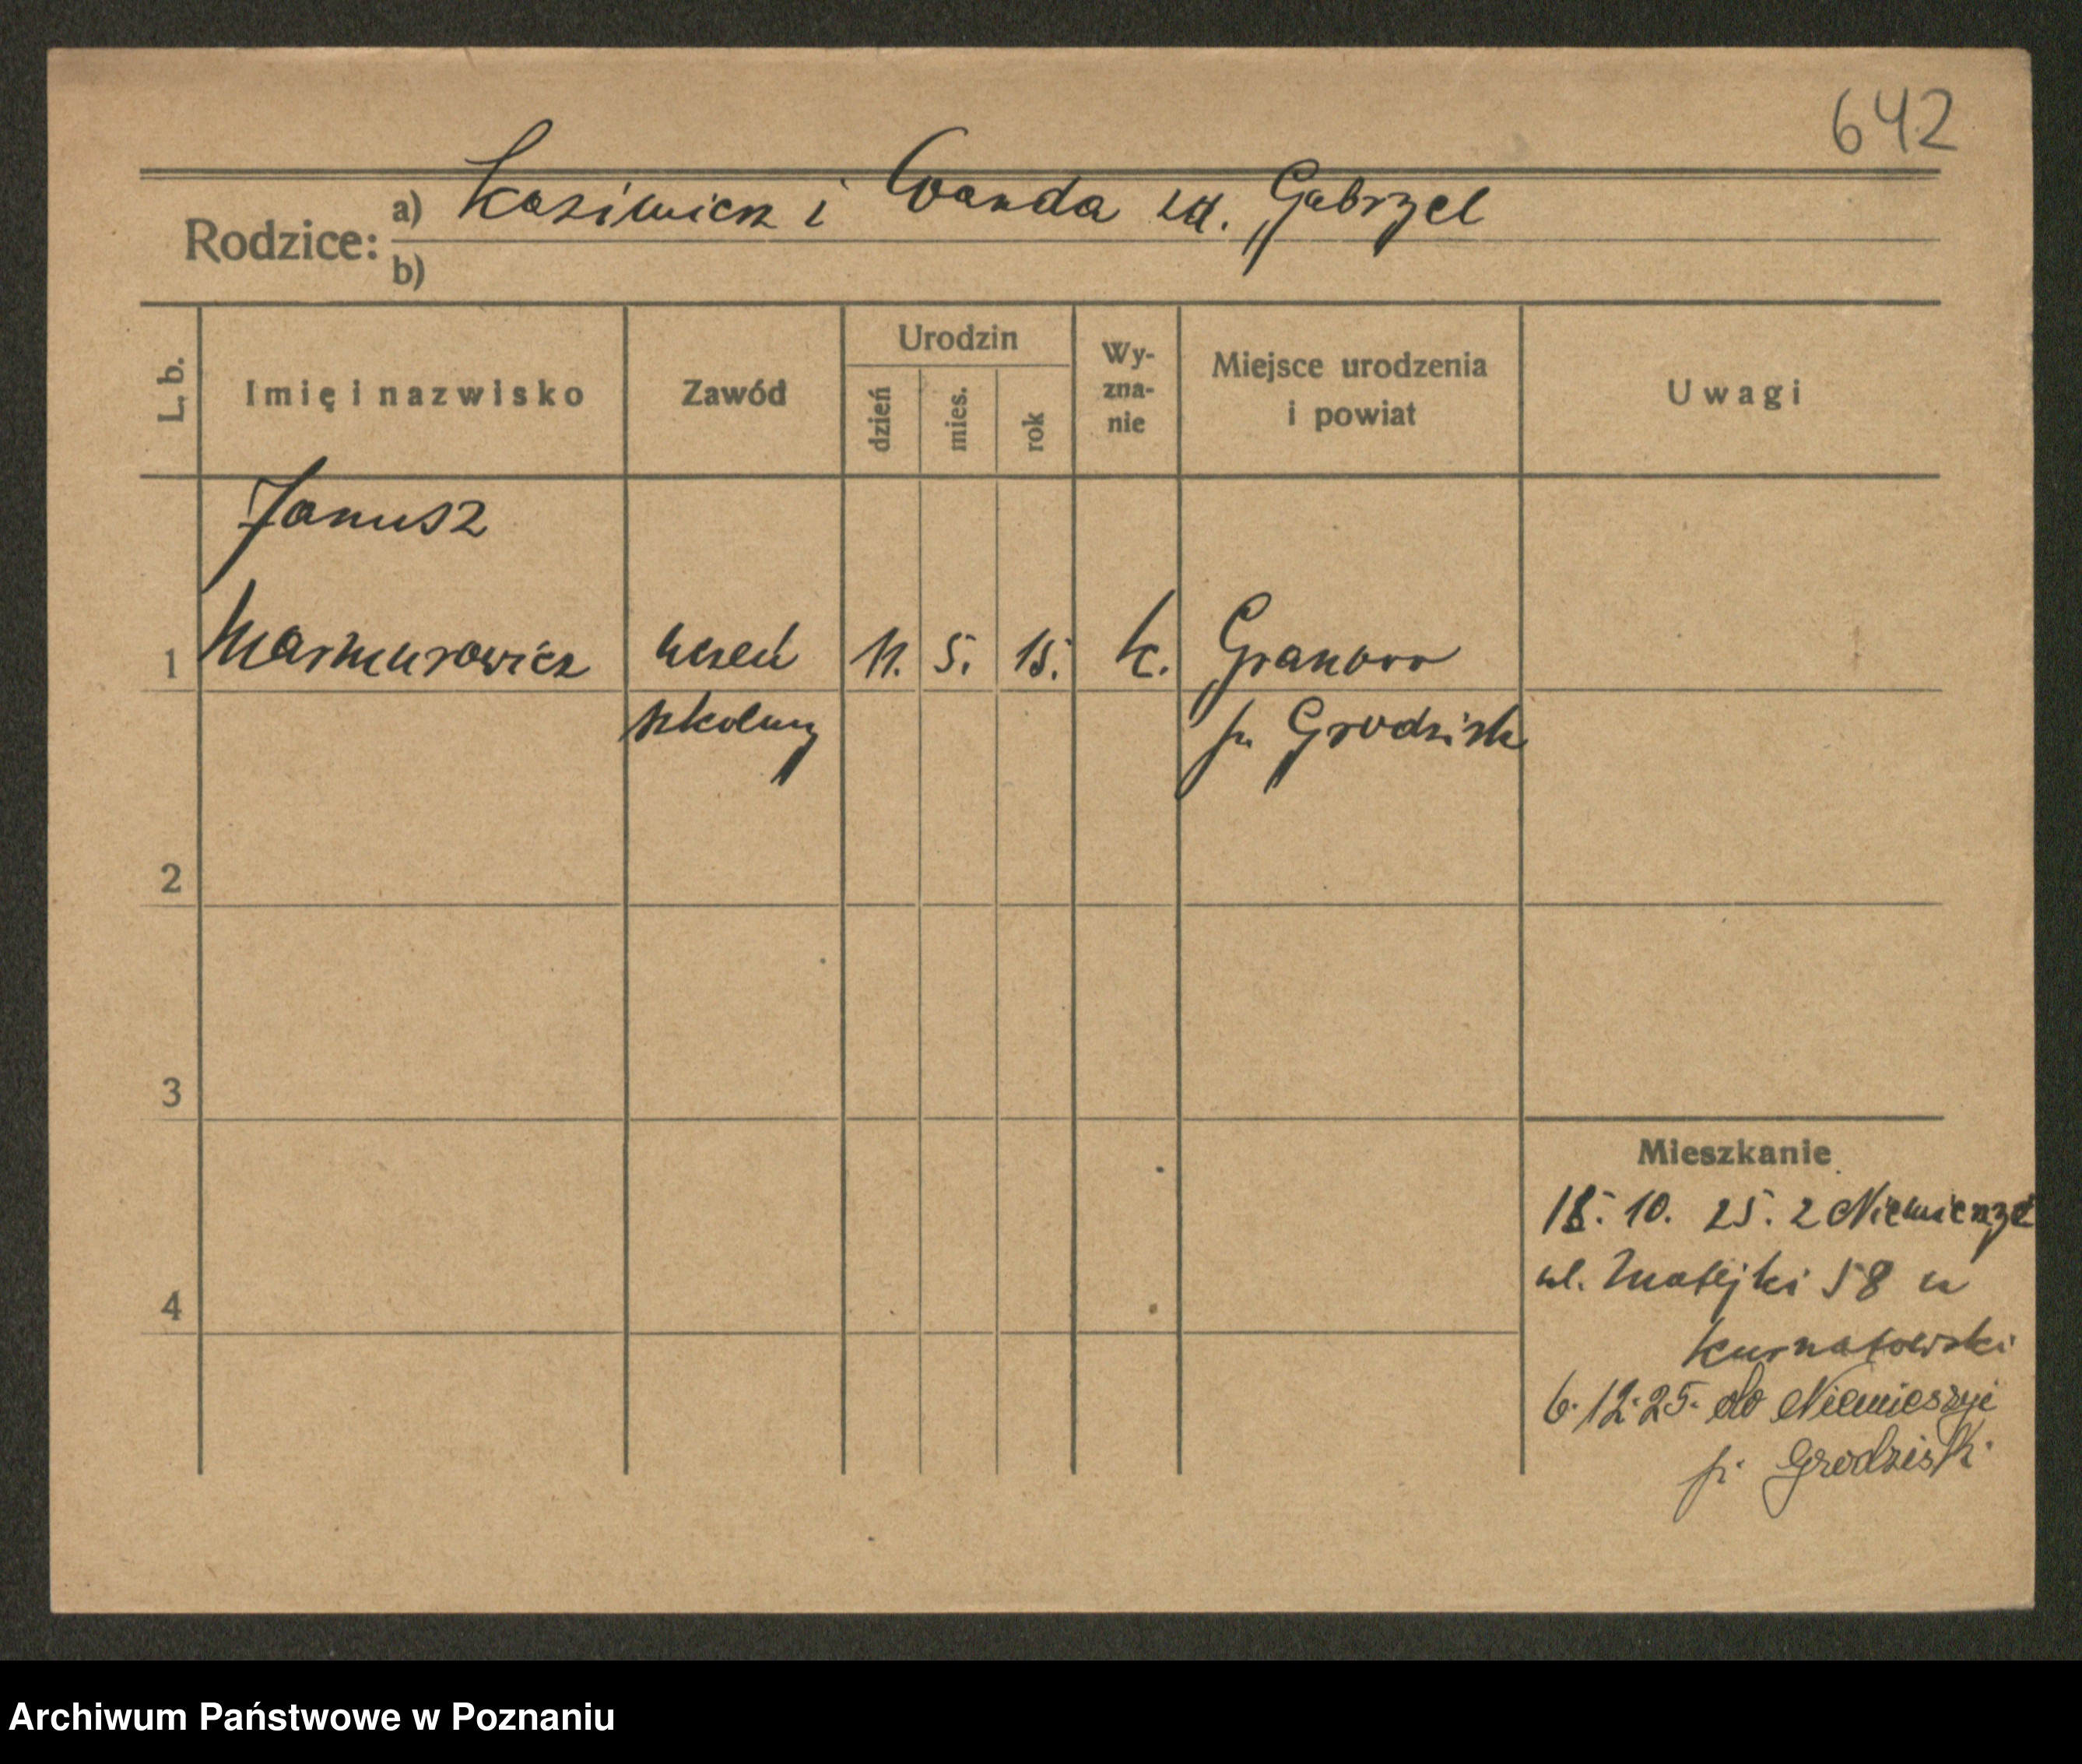 642
Rodzice: a) Kazimierz i Wanda zd. Gabrzel
b)
L. b.
Imię i nazwisko
Zawód
Urodzin
dzień
mies.
rok
Wy-
zna-
nie
Miejsce urodzenia
i powiat
Uwagi
Janusz
1 Marmurowicz uczeń 11. 5. 15. k. Granowo
szkolny p. Grodzisk
2
3
4
Mieszkanie
15. 10. 25. z
ul. Matejki 58 u
Kurnatowski
6. 12. 25. do
p. Grodzisk.
Archiwum Państwowe w Poznaniu